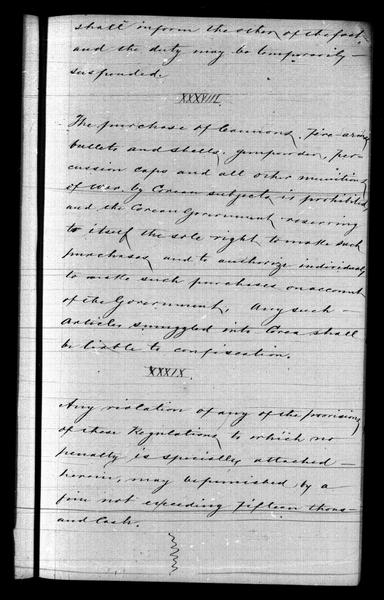 shall inform the other of the fact
and the duty may be temporarily
suspended.
XXXVIII.
The purchase of Cannons, fire-arms,
bullets and shells, gunpowder, per-
cussion caps and all other munitions
of war by Corean subjects is prohibited,
and the Corean Government reserving
to itself the sole right to make such
purchases, and to authorize individuals
to make such purchases on account
of the Government. Any such
articles smuggled into Corea shall
be liable to confiscation.
XXXIX
Any violation of any of the provisions
of these Regulations, to which no
penalty is specially attached
herein, may be punished by a
fine not exceeding fifteen thous-
and Cash.